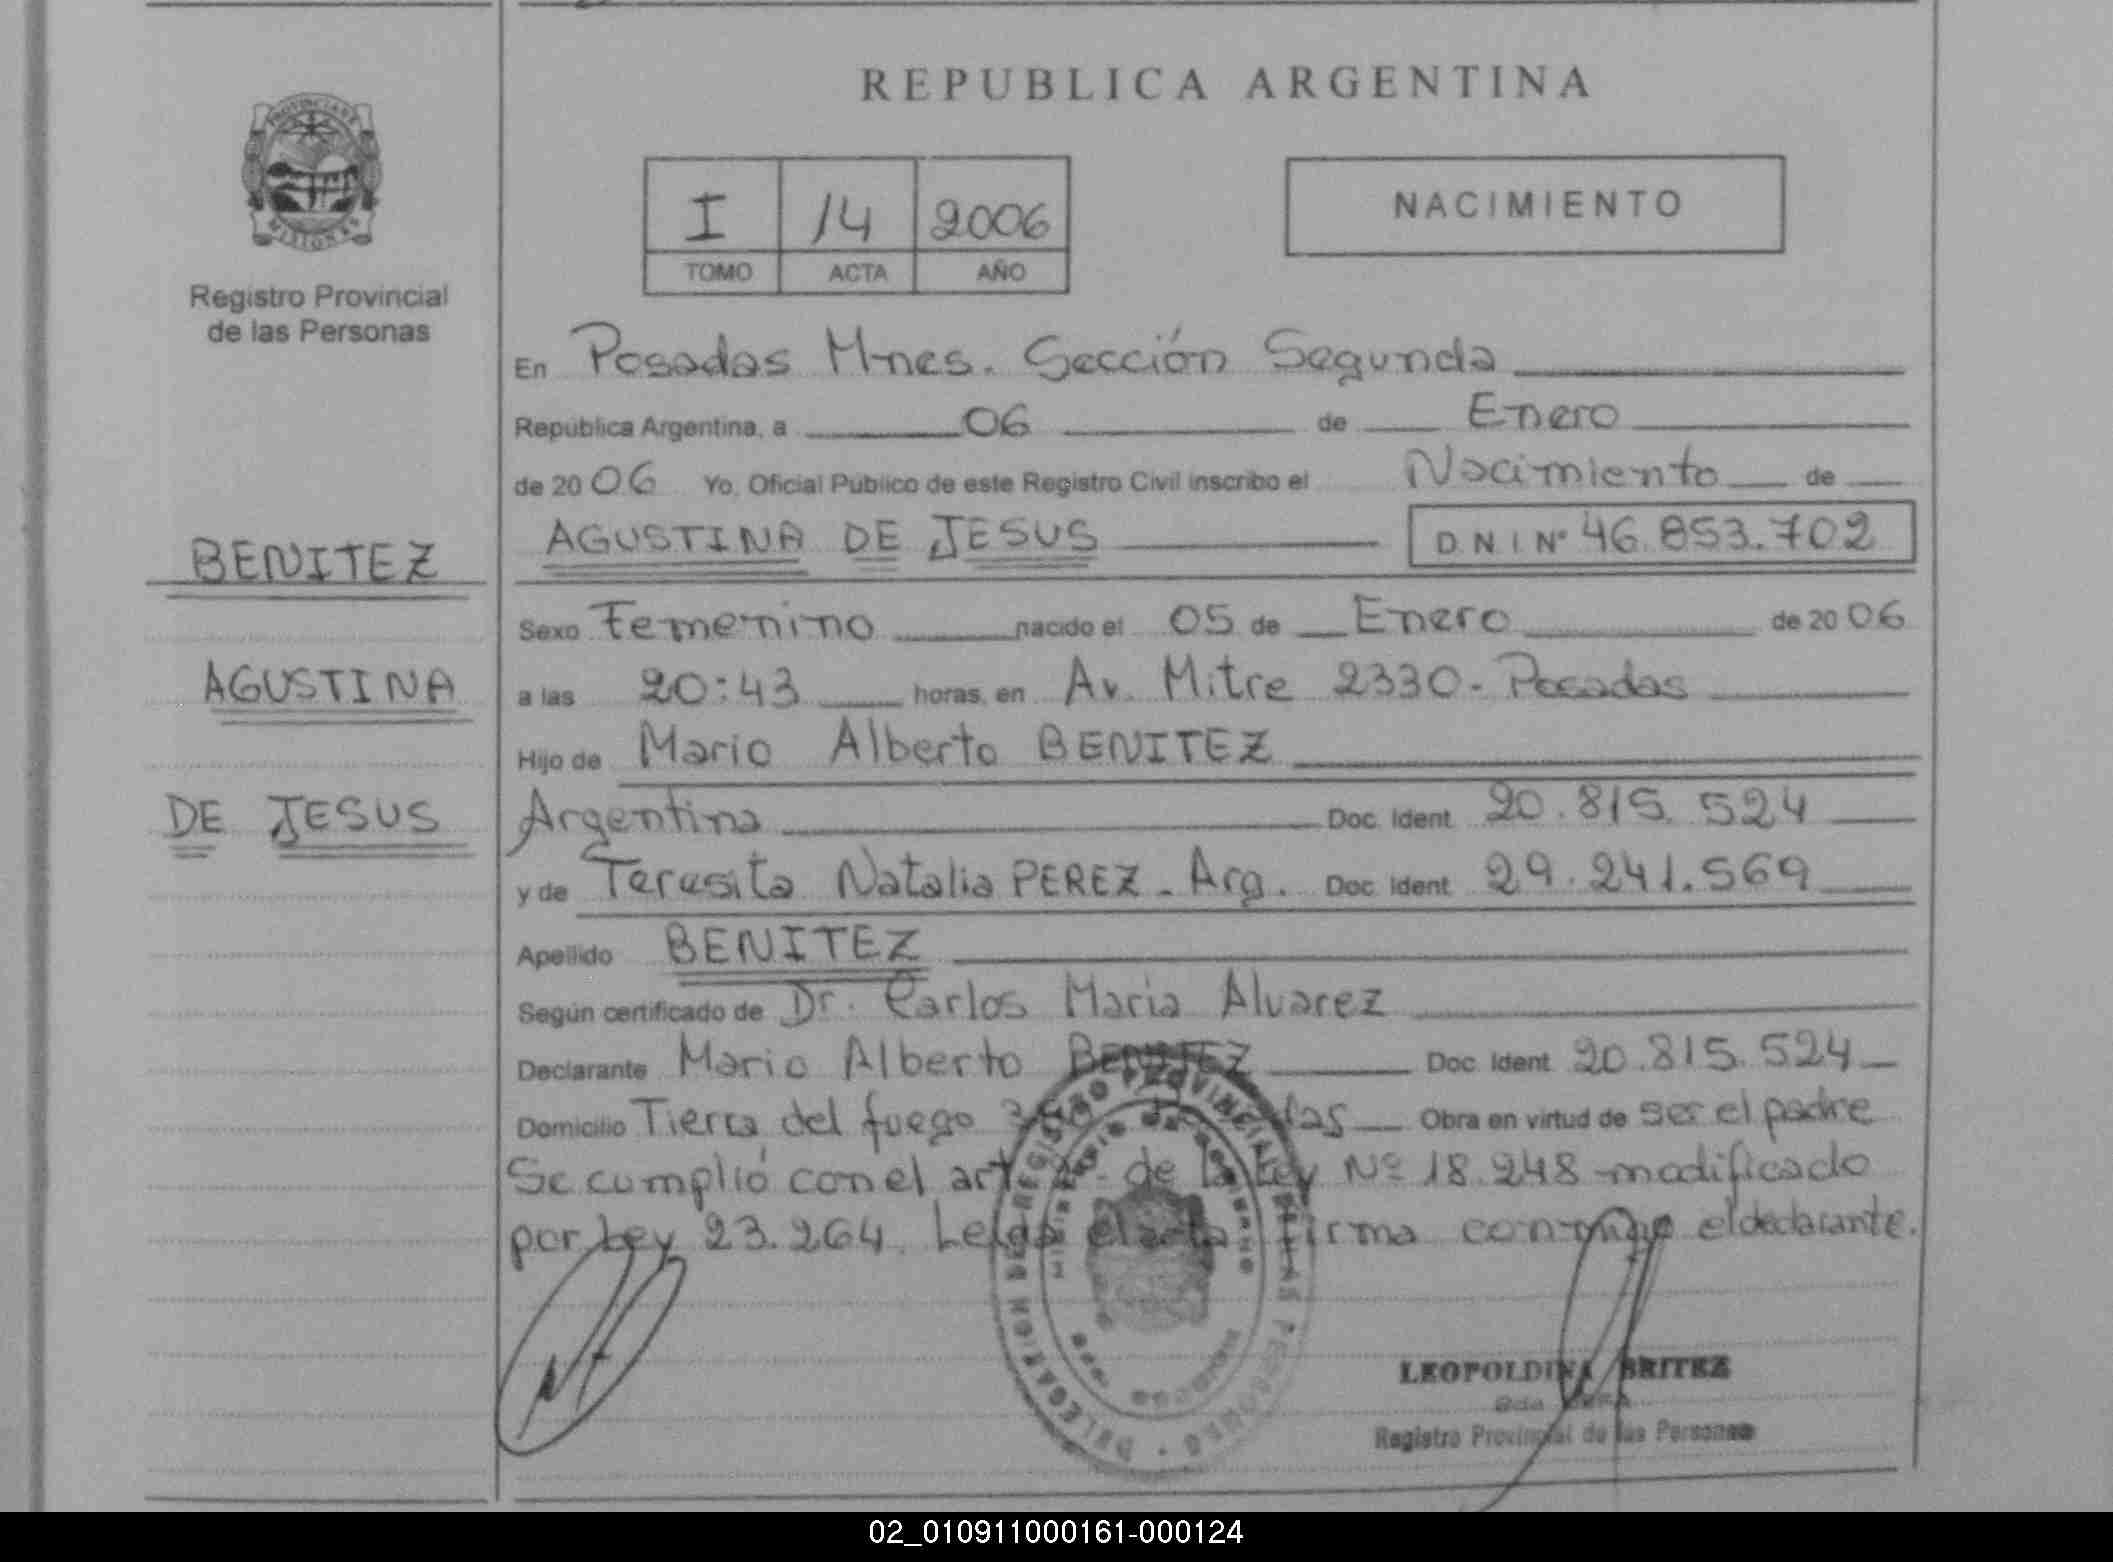 PROVINCIA DE
MISIONES
Registro Provincial
de las Personas
BENITEZ
AGUSTINA
DE JESUS
REPUBLICA ARGENTINA
I 14 2006
TOMO ACTA AÑO
NACIMIENTO
En Posadas Mnes. Sección Segunda
República Argentina, a 06 de Enero
de 2006 Yo, Oficial Público de este Registro Civil inscribo el Nacimiento de
AGUSTINA DE JESUS D.N.I Nº 46.853.702
Sexo Femenino nacido el 05 de Enero de 2006
a las 20:43 horas, en Av. Mitre 2330 - Posadas
Hijo de Mario Alberto BENITEZ
Argentina Doc. Ident. 20.815.524
y de Teresita Natalia PEREZ - Arg. Doc. Ident. 29.241.569
Apellido BENITEZ
Según certificado de Dr. Carlos Maria Alvarez
Declarante Mario Alberto BENITEZ Doc. Ident. 20.815.524
Domicilio Tierra del fuego Obra en virtud de ser el padre
Se cumplió con el art. de la Ley Nº 18.248 modificado
por Ley 23.264. Leida el acta firma conmigo el declarante.
LEOPOLDINA BRITEZ
Registro Provincial de las Personas
02_010911000161-000124